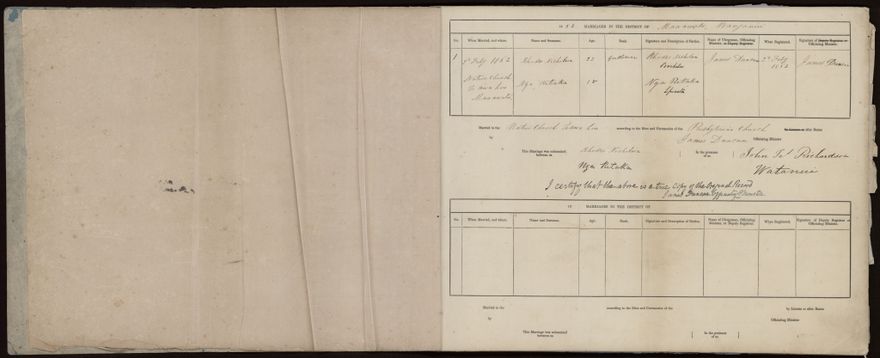 MARRIAGES IN THE DISTRICT OF Manawatu
No. When Married, and where. Name and Surname. Age. Rank. Signature and Description of Parties. Name of Clergyman, Officiating Minister, or Deputy-Registrar. When Registered. Signature of Deputy Registrar or Officiating Minister.
1 Feby 1852 Rhodes Nicholson 22 Rhodes Nicholson James Duncan 2nd Feby 1852 James Duncan
Native Church
Bachelor
Manawatu Nga Ritaka 18 Nga Ritaka
Spinster
Married in the Native Church according to the Rites and Ceremonies of the Presbyterian Church by Licence or after Banns
by James Duncan Officiating Minister
This Marriage was solemnized between us Rhodes Nicholson In the presence of us John Richardson
Nga Ritaka
I certify that the above is a true copy of the Original Record
James Duncan Officiating Minister
18 MARRIAGES IN THE DISTRICT OF
No. When Married, and where. Name and Surname. Age. Rank. Signature and Description of Parties. Name of Clergyman, Officiating Minister, or Deputy-Registrar. When Registered. Signature of Deputy Registrar or Officiating Minister.
Married in the according to the Rites and Ceremonies of the by Licence or after Banns
by Officiating Minister
This Marriage was solemnized between us In the presence of us